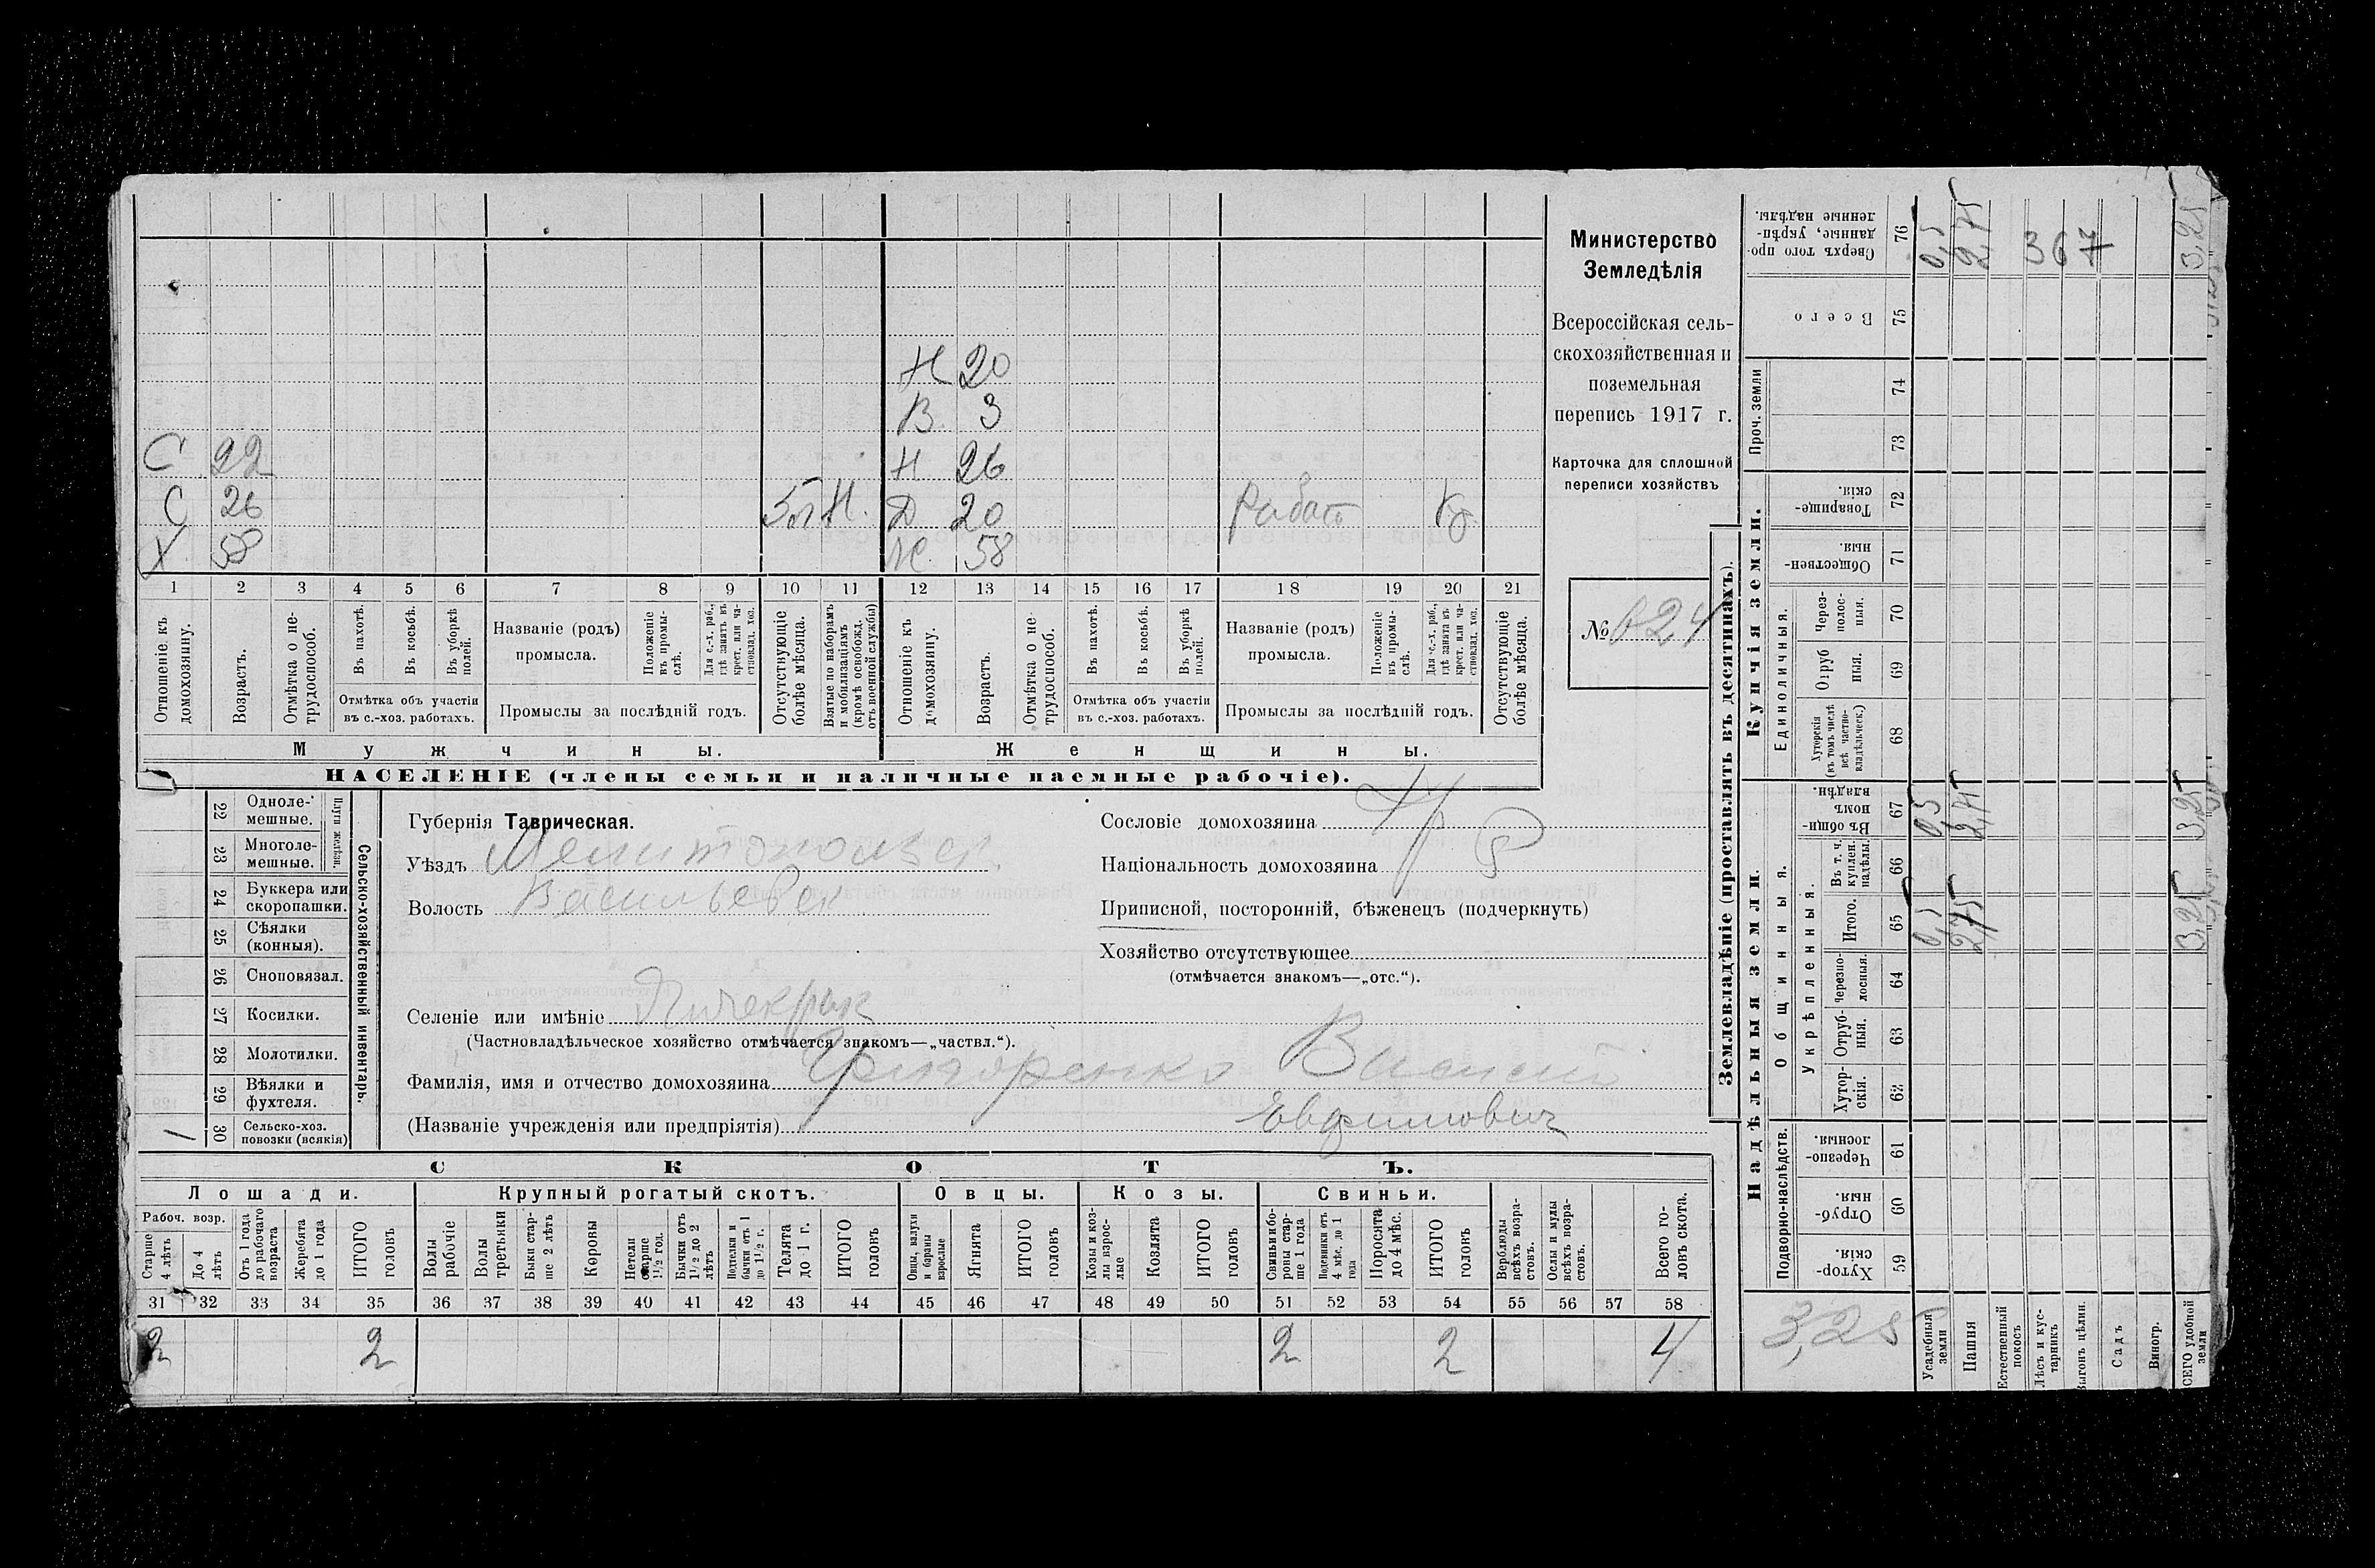 Министерство
Земледѣлія
Всероссійская сель-
скохозяйственная и
поземельная
перепись 1917 г.
Карточка для сплошной
переписи хозяйствъ
№ 624
Н 20
В 3
С 22 Н 26
С 26 Д 20 Работ
Х 58 М. 58
1 2 3 4 5 6 7 8 9 10 11 12 13 14 15 16 17 18 19 20 21
Отношеніе къ домохозяину.
Возрастъ.
Отмѣтка о не-трудоспособ.
Въ пахотѣ.
Въ косьбѣ.
Въ уборкѣ полей.
Отмѣтка объ участіи
въ с.-хоз. работахъ.
Названіе (родъ)
промысла.
Положеніе въ промы-слѣ.
Для с.-х. раб., гдѣ занятъ въ крест. или ча-стновлад. хоз.
Промыслы за послѣдній годъ.
Отсутствующіе болѣе мѣсяца.
Взятые по наборамъ и мобилизаціямъ (кромѣ освобожд. отъ военной службы)
Отношеніе къ домохозяину.
Возрастъ.
Отмѣтка о не-трудоспособ.
Въ пахотѣ.
Въ косьбѣ.
Въ уборкѣ полей.
Отмѣтка объ участіи
въ с.-хоз. работахъ.
Названіе (родъ)
промысла.
Положеніе въ промы-слѣ.
Для с.-х. раб., гдѣ занята въ крест. или ча-стновлад. хоз.
Промыслы за послѣдній годъ.
Отсутствующіе болѣе мѣсяца.
Мужчины. Женщины.
НАСЕЛЕНІЕ (члены семьи и наличные наемные рабочіе).
Сельско-хозяйственный инвентарь.
Плуги желѣзн.
22 Одноле-мешные.
23 Многоле-мешные.
24 Буккера или скоропашки.
25 Сѣялки (конныя).
26 Сноповязал.
27 Косилки.
28 Молотилки.
29 Вѣялки и фухтеля.
30 Сельско-хоз. повозки (всякія) 1
Губернія Таврическая.
Уѣздъ Мелитопольск.
Волость Васильевск
Сословіе домохозяина
Національность домохозяина
Приписной, посторонній, бѣженецъ (подчеркнуть)
Хозяйство отсутствующее
(отмѣчается знакомъ—„отс.“).
Селеніе или имѣніе
(Частновладѣльческое хозяйство отмѣчается знакомъ—„частвл.“).
Фамилія, имя и отчество домохозяина Григоренко
(Названіе учрежденія или предпріятія) Евфимович
СКОТЪ.
Лошади. Крупный рогатый скотъ. Овцы. Козы. Свиньи.
Рабоч. возр.
Старше 4 лѣтъ
До 4 лѣтъ
Отъ 1 года до рабочаго возраста
Жеребята до 1 года
ИТОГО головъ
Волы рабочіе
Волы третьяки
Быки стар-ше 2 лѣтъ
Коровы
Нетели старше 1 1/2 год.
Бычки отъ 1 1/2 до 2 лѣтъ
Подтелки и бычки отъ 1 до 1 1/2 г.
Телята до 1 г.
ИТОГО головъ
Овцы, валухи и бараны взрослые
Ягнята
ИТОГО головъ
Козы и коз-лы взрос-лые
Козлята
ИТОГО головъ
Свиньи и бо-ровы стар-ше 1 года
Подсвинки отъ 4 мѣс. до 1 года
Поросята до 4 мѣс.
ИТОГО головъ
Верблюды всѣхъ возра-стовъ.
Ослы и мулы всѣхъ возра-стовъ.
Всего го-ловъ скота.
31 32 33 34 35 36 37 38 39 40 41 42 43 44 45 46 47 48 49 50 51 52 53 54 55 56 57 58
2 2 2 2 4
Землевладѣніе (проставлять въ десятинахъ).
Сверхъ того про-данные, укрѣп-ленные надѣлы. 76 0,5 2,75 367 3,25
Всего 75
Проч. земли
74
73
Купчія земли.
Товарище-скія. 72
Обществен-ныя. 71
Единоличныя.
Через-полос-ныя. 70
Отруб-ныя. 69
Хуторскія (въ томъ числѣ всѣ частно-владѣльческ.) 68
Надѣльныя земли.
Общинныя.
Въ общи-номъ владѣн. 67 0,5 2,75 3,25
Укрѣпленныя.
Въ т. ч. куплен. надѣлы. 66
Итого. 65 0,5 2,75 3,25
Черезпо-лосныя. 64
Отруб-ныя. 63
Хутор-скія. 62
Подворно-наслѣдств.
Черезпо-лосныя. 61
Отруб-ныя. 60
Хутор-скія. 59
3,25
Усадебныя земли
Пашня
Естественный покосъ
Лѣсъ и кус-тарникъ
Выгонъ цѣлин.
Садъ
Виногр.
ВСЕГО удобной земли